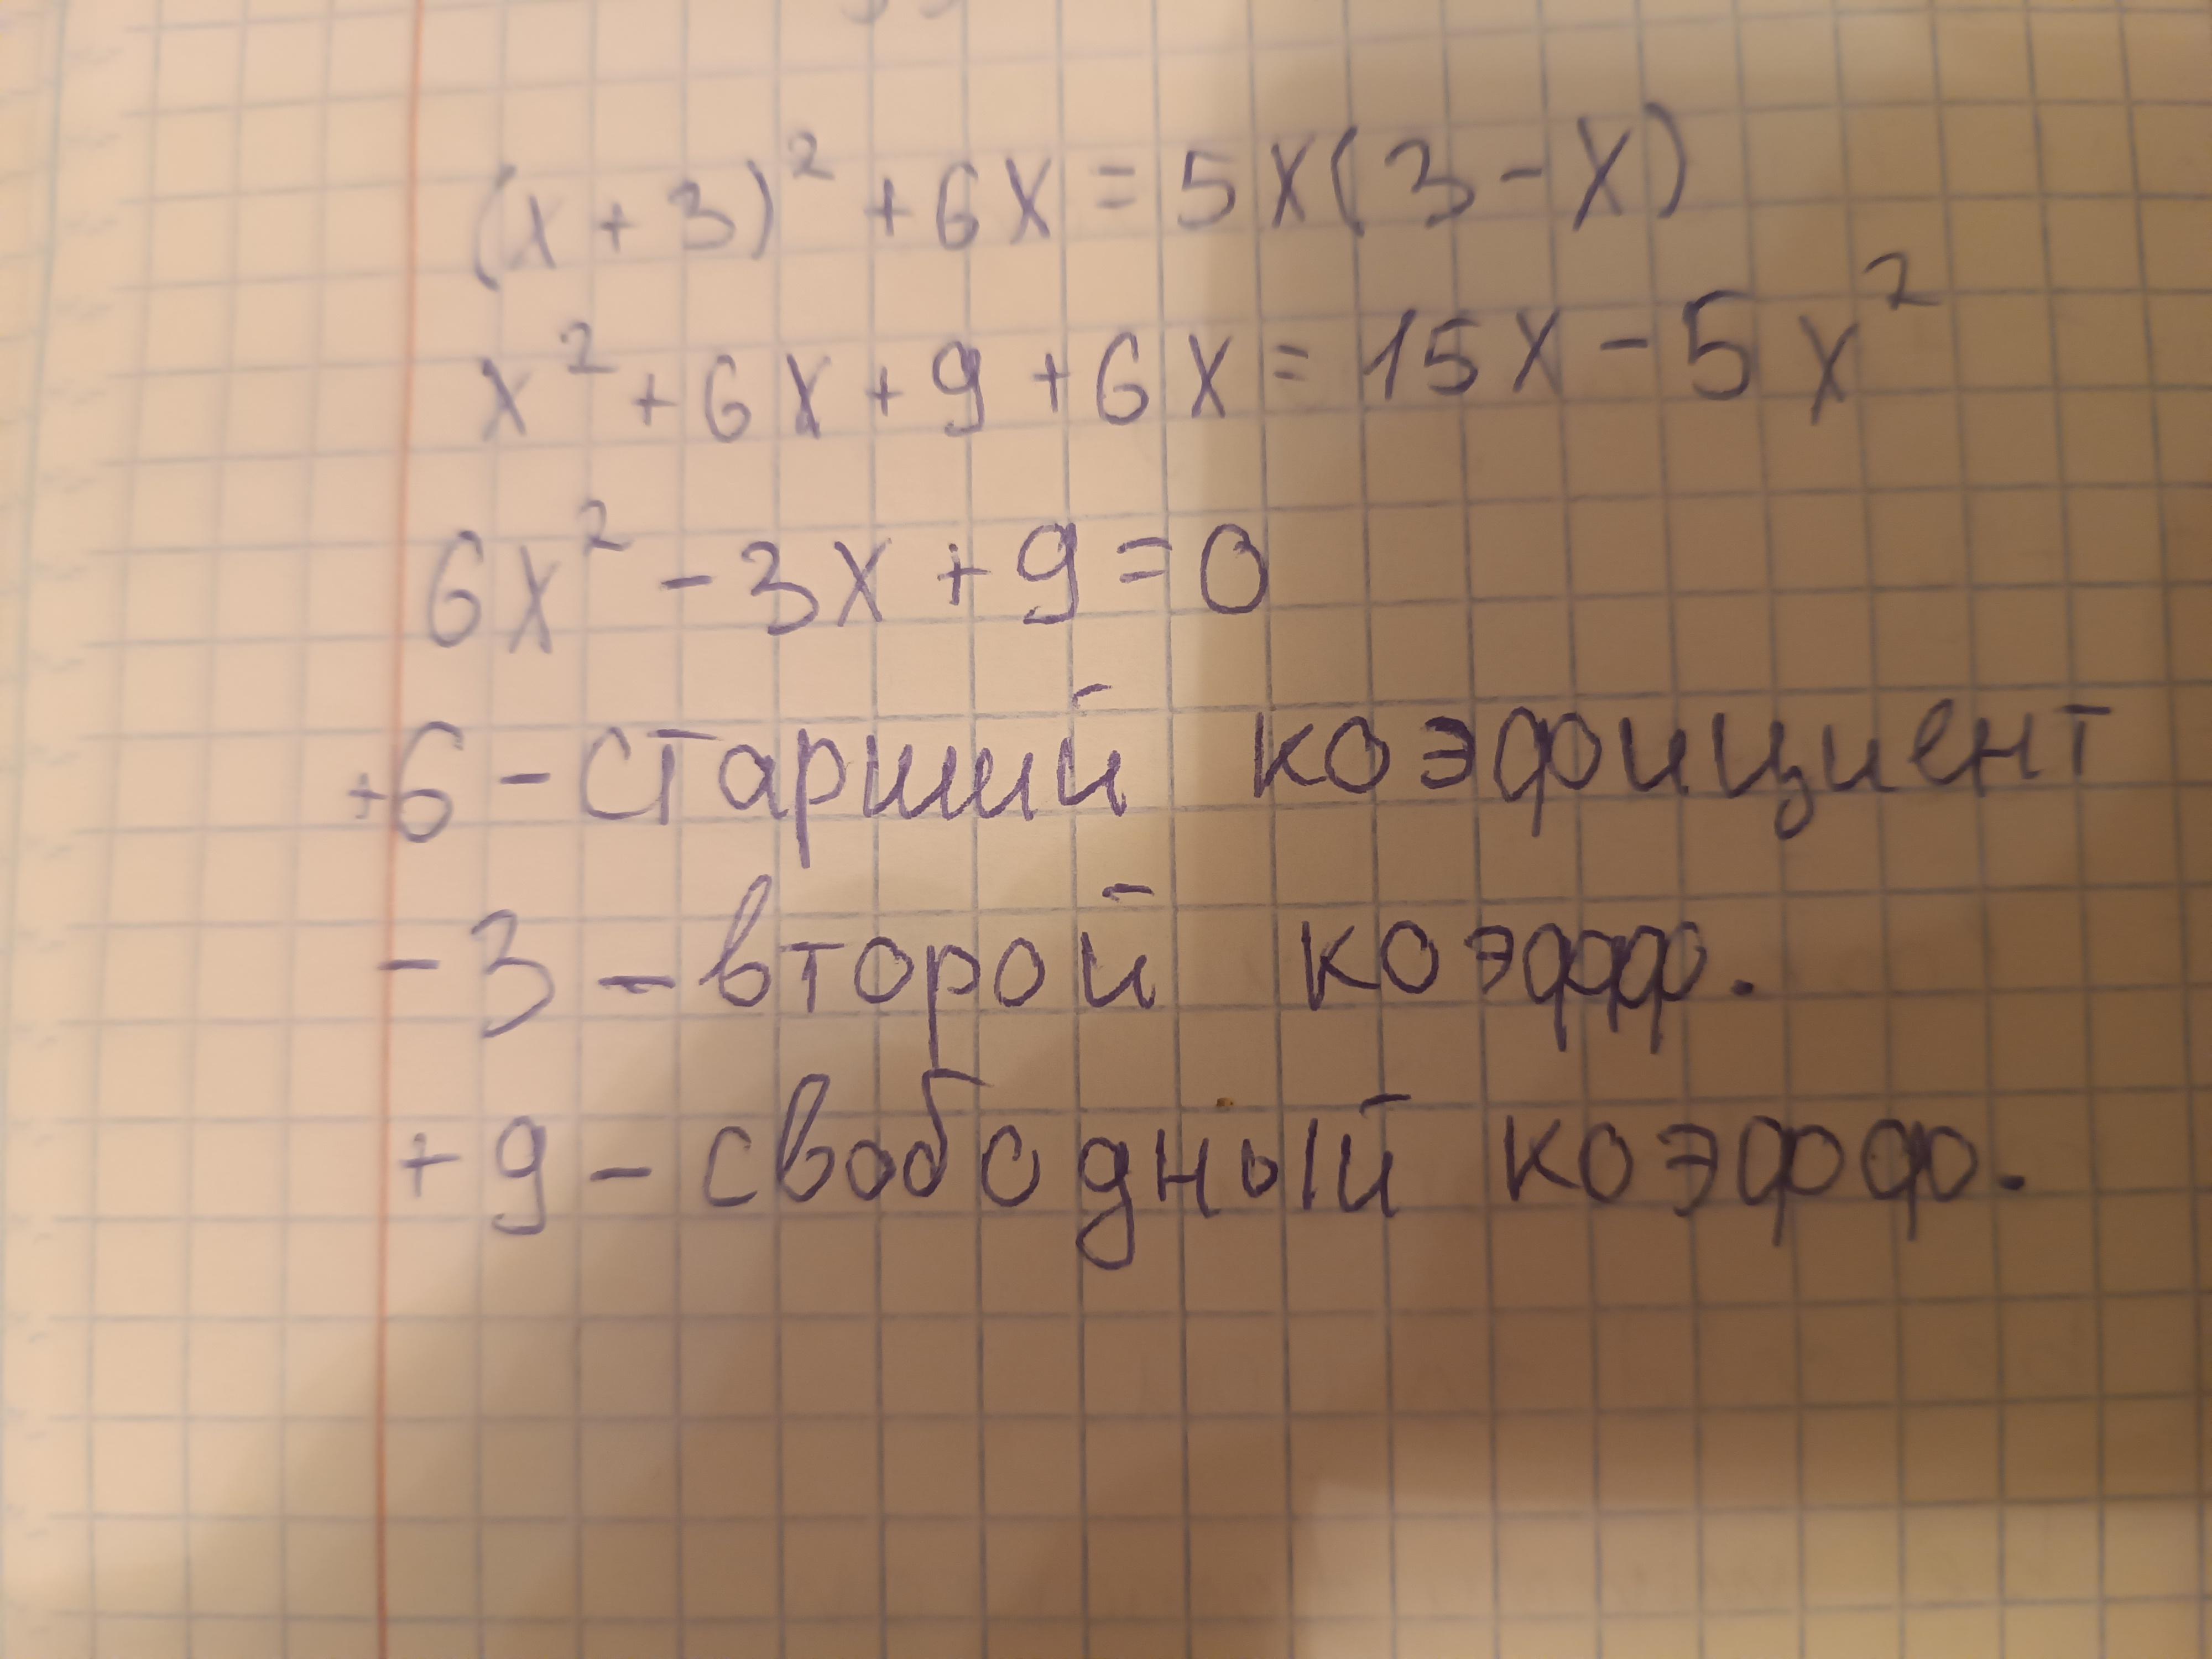 (x+3)² + 6x = 5x(3-x)
x² + 6x + 9 + 6x = 15x - 5x²
6x² - 3x + 9 = 0
+6 - старший коэфициент
-3 - второй коэфф.
+9 - свободный коэфф.